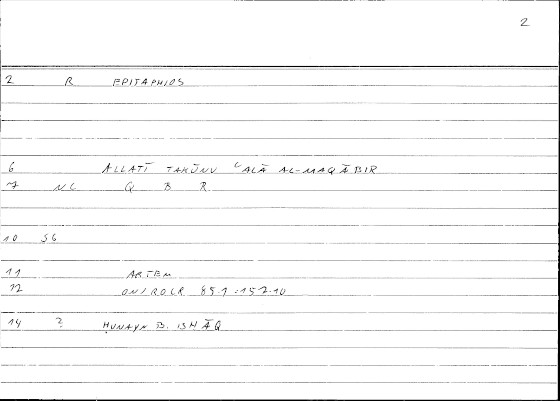 2
2 R EPITAPHIOS
6 ALLATĪ TAKŪNU ʿALĀ AL-MAQĀBIR
7 NC Q B R
10 S6
11 ARTEM
12 ONIROCR 85.1 = 152.10
14 ? ḤUNAYN B. ISḤĀQ